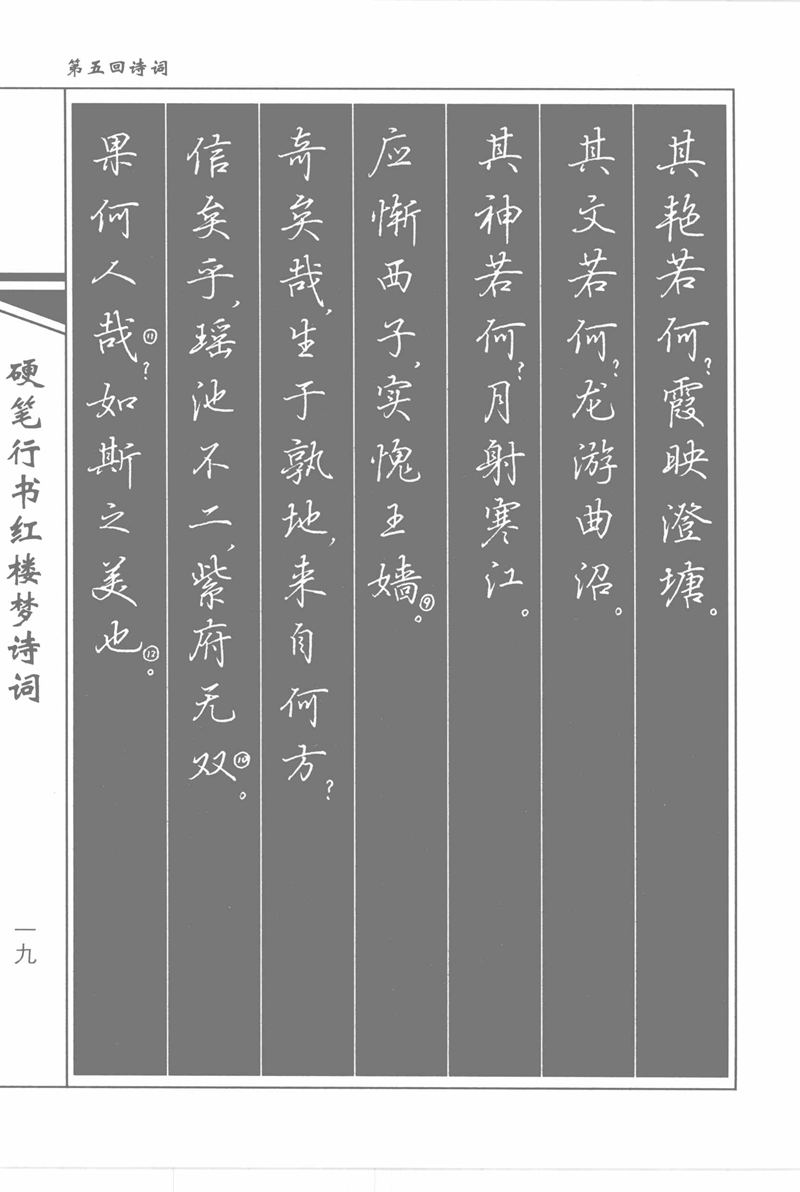 第五回诗词
其艳若何？霞映澄塘。
其文若何？龙游曲沼。
其神若何？月射寒江。
应惭西子，实愧王嫱⑨。
奇矣哉，生于孰地，来自何方？
信矣乎，瑶池不二，紫府无双⑩。
果何人哉⑪？如斯之美也⑫。
硬笔行书红楼梦诗词
一九